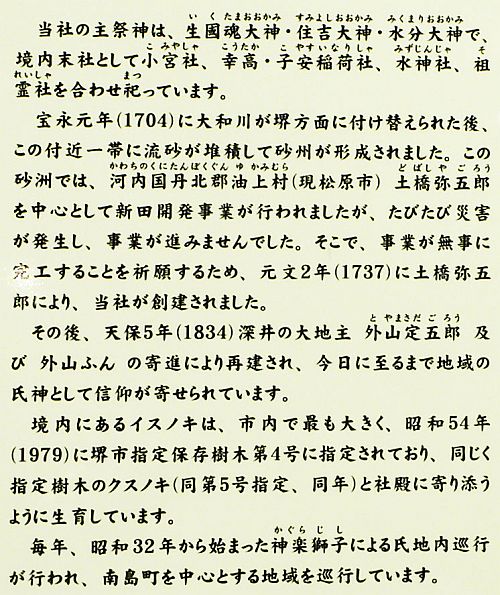 当社の主祭神は、生國魂大神・住吉大神・水分大神で、
境内末社として小宮社、幸高・子安稲荷社、水神社、祖
霊社を合わせ祀っています。
宝永元年(1704)に大和川が堺方面に付け替えられた後、
この付近一帯に流砂が堆積して砂州が形成されました。この
砂洲では、河内国丹北郡油上村(現松原市) 土橋弥五郎
を中心として新田開発事業が行われましたが、たびたび災害
が発生し、事業が進みませんでした。そこで、事業が無事に
完工することを祈願するため、元文2年(1737)に土橋弥五
郎により、当社が創建されました。
その後、天保5年(1834)深井の大地主 外山定五郎 及
び 外山ふん の寄進により再建され、今日に至るまで地域の
氏神として信仰が寄せられています。
境内にあるイスノキは、市内で最も大きく、昭和54年
(1979)に堺市指定保存樹木第4号に指定されており、同じく
指定樹木のクスノキ(同第5号指定、同年)と社殿に寄り添う
ように生育しています。
毎年、昭和32年から始まった神楽獅子による氏地内巡行
が行われ、南島町を中心とする地域を巡行しています。